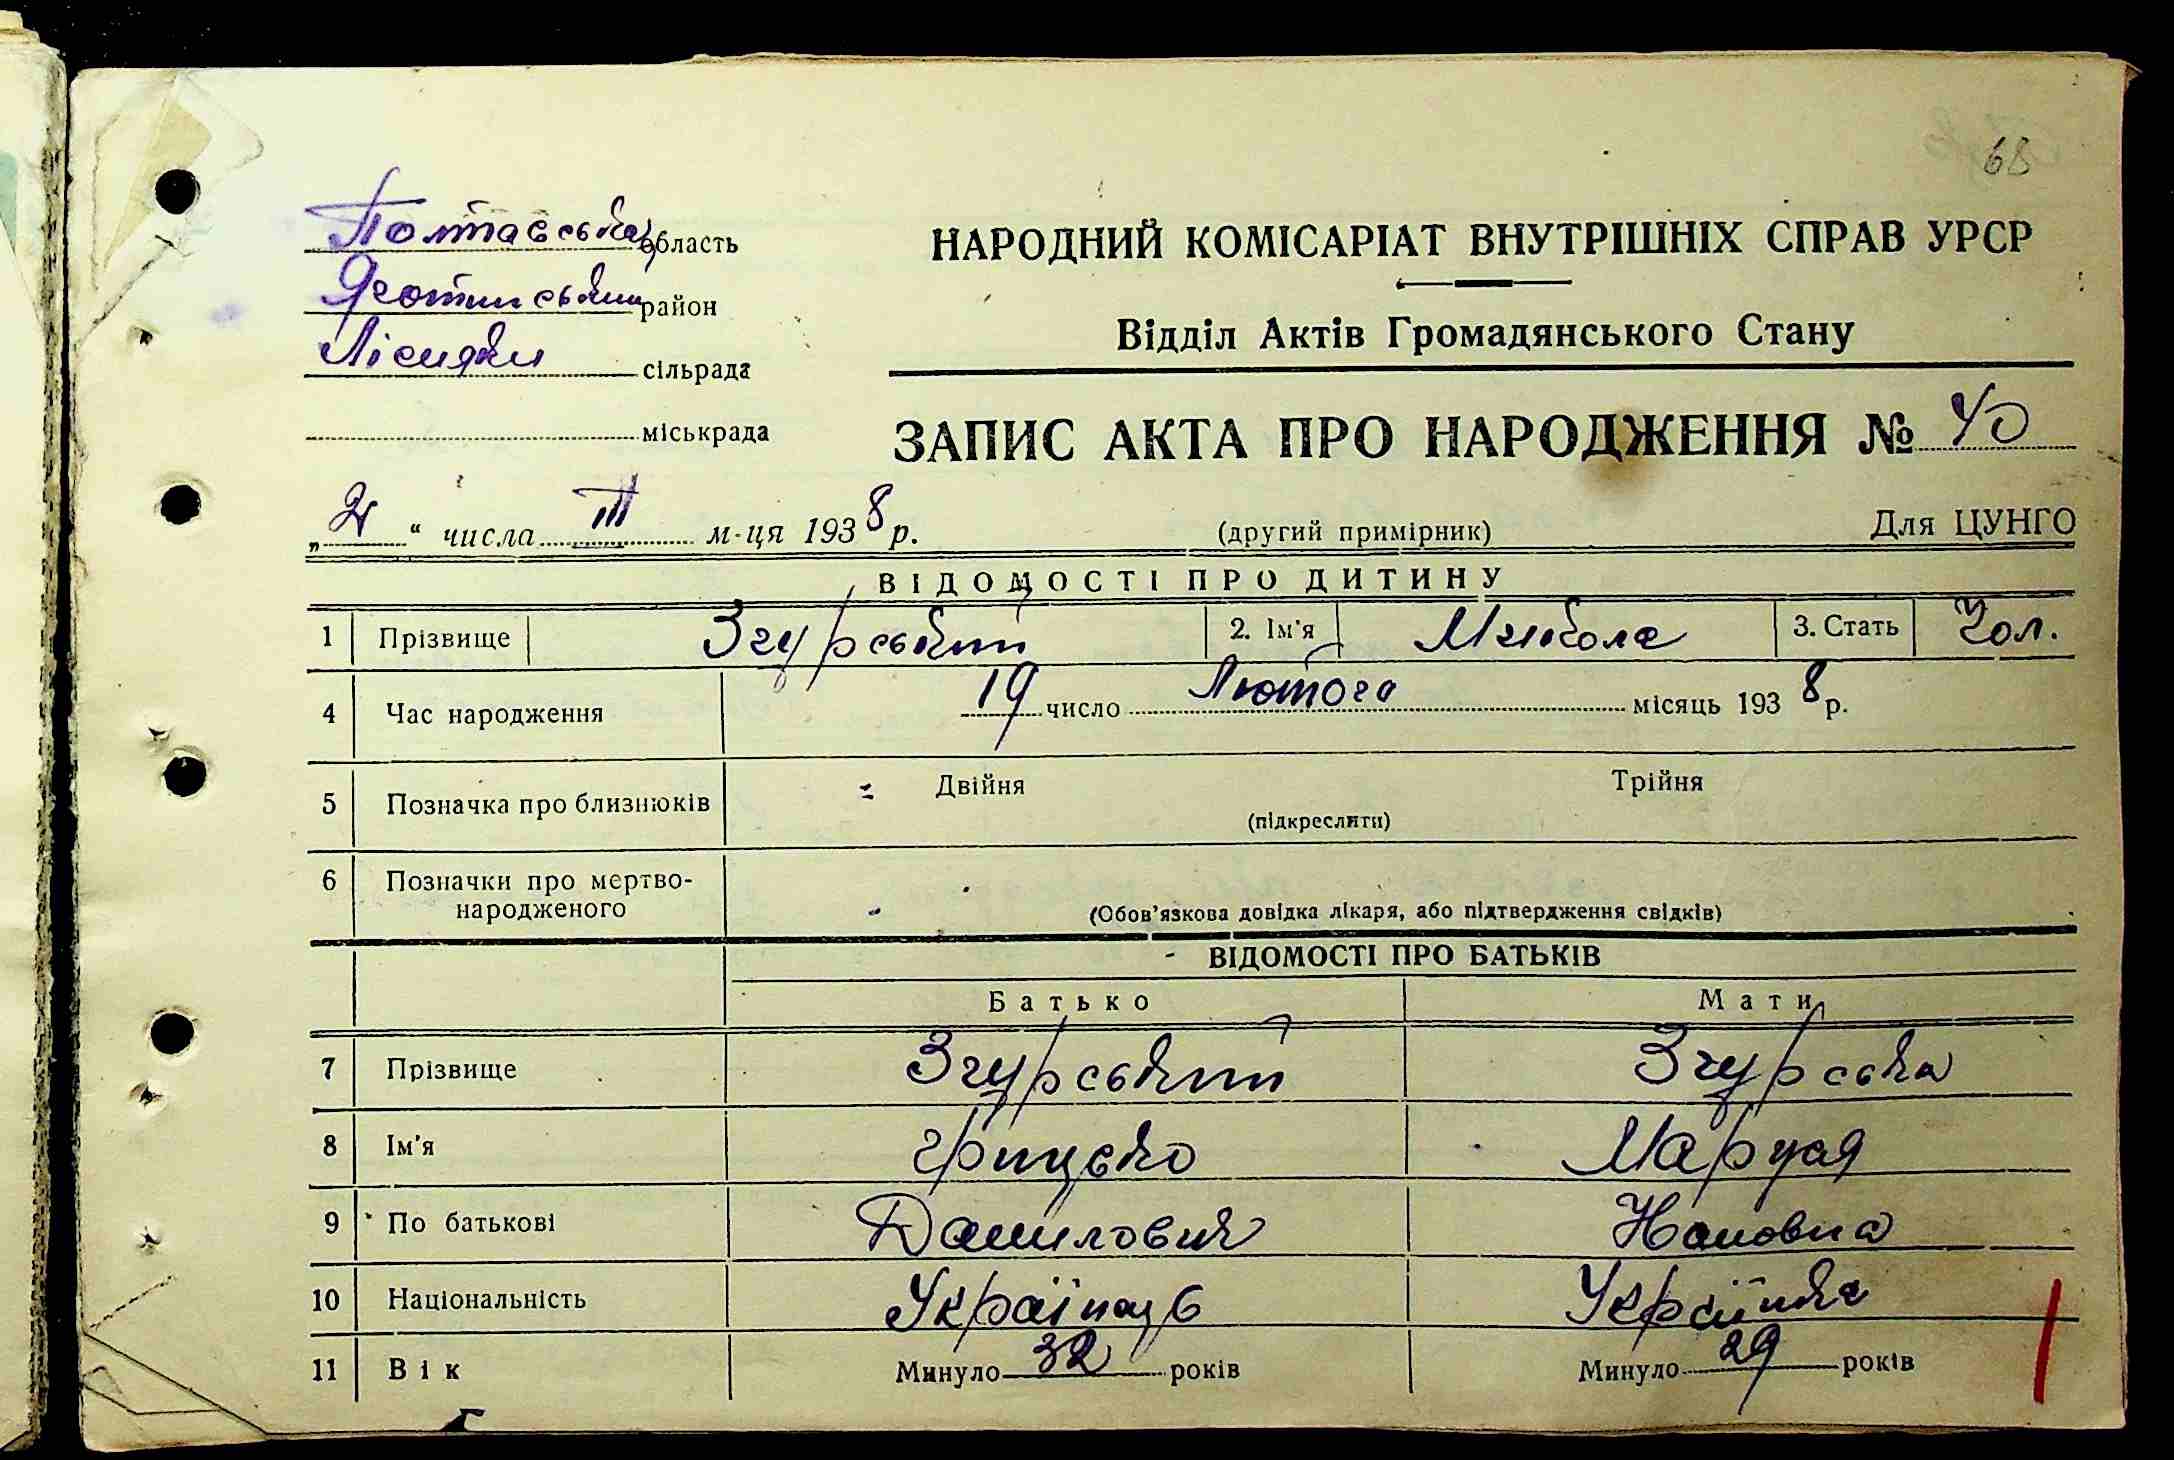 68
Полтавська область
Яготинський район
Лісняки сільрада
міськрада
НАРОДНИЙ КОМІСАРІАТ ВНУТРІШНІХ СПРАВ УРСР
Відділ Актів Громадянського Стану
ЗАПИС АКТА ПРО НАРОДЖЕННЯ № 40
„2“ числа III м-ця 1938 р.
(другий примірник)
Для ЦУНГО
ВІДОМОСТІ ПРО ДИТИНУ
1 Прізвище Згурський 2. Ім'я Микола 3. Стать Чол.
4 Час народження 19 число Лютого місяць 1938 р.
5 Позначка про близнюків - Двійня Трійня
(підкреслити)
6 Позначки про мертво-
народженого - (Обов'язкова довідка лікаря, або підтвердження свідків)
ВІДОМОСТІ ПРО БАТЬКІВ
Батько Мати
7 Прізвище Згурський Згурська
8 Ім'я Грицько Маруся
9 По батькові Данилович
10 Національність Українець Українка
11 Вік Минуло 32 років Минуло 29 років